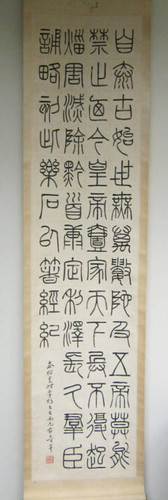 自泰古始世無萬數陀及五帝莫能
禁止迺今皇帝壹家天下兵不復起
災害滅除黔首康定利澤長久群臣
誦略刻此樂石以箸經紀